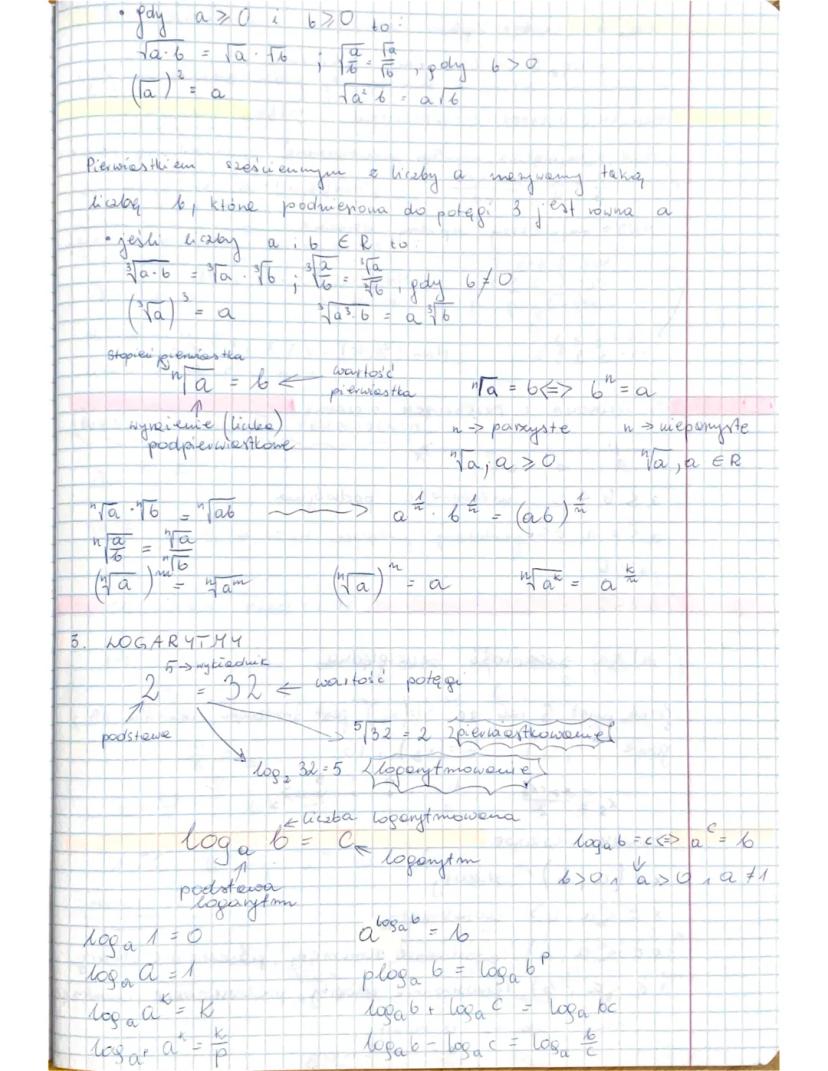 • gdy a ≥ 0 i b ≥ 0 to:
√(a·b) = √a · √b ; √(a/b) = √a/√b , gdy b > 0
(√a)² = a √(a²b) = a√b
Pierwiastkiem sześciennym z liczby a nazywamy taką
liczbę b, która podniesiona do potęgi 3 jest równa a
• jeśli liczby a i b ∈ R to
∛(a·b) = ∛a · ∛b ; ∛(a/b) = ∛a/∛b , gdy b ≠ 0
(∛a)³ = a ∛(a³·b) = a∛b
stopień pierwiastka
ⁿ√a = b ← wartość pierwiastka
ⁿ√a = b <=> bⁿ = a
wyrażenie (liczba)
podpierwiastkowe
n -> parzyste n -> nieparzyste
ⁿ√a, a ≥ 0 ⁿ√a, a ∈ R
ⁿ√a · ⁿ√b = ⁿ√(ab) → a^(1/n) · b^(1/n) = (ab)^(1/n)
ⁿ√(a/b) = ⁿ√a/ⁿ√b
(ⁿ√a)^m = ⁿ√(a^m) (ⁿ√a)ⁿ = a ⁿ√(a^k) = a^(k/n)
3. LOGARYTMY
5 -> wykładnik
2⁵ = 32 ← wartość potęgi
podstawa
⁵√32 = 2 pierwiastkowanie
log₂ 32 = 5 logarytmowanie
← liczba logarytmowana
logₐ b = c ← logarytm
podstawa
logarytm
logₐ b = c <=> a^c = b
b > 0, a > 0, a ≠ 1
logₐ 1 = 0 a^(logₐ b) = b
logₐ a = 1 p logₐ b = logₐ b^p
logₐ a^k = k logₐ b + logₐ c = logₐ bc
log_(a^p) a^k = k/p logₐ b - logₐ c = logₐ b/c